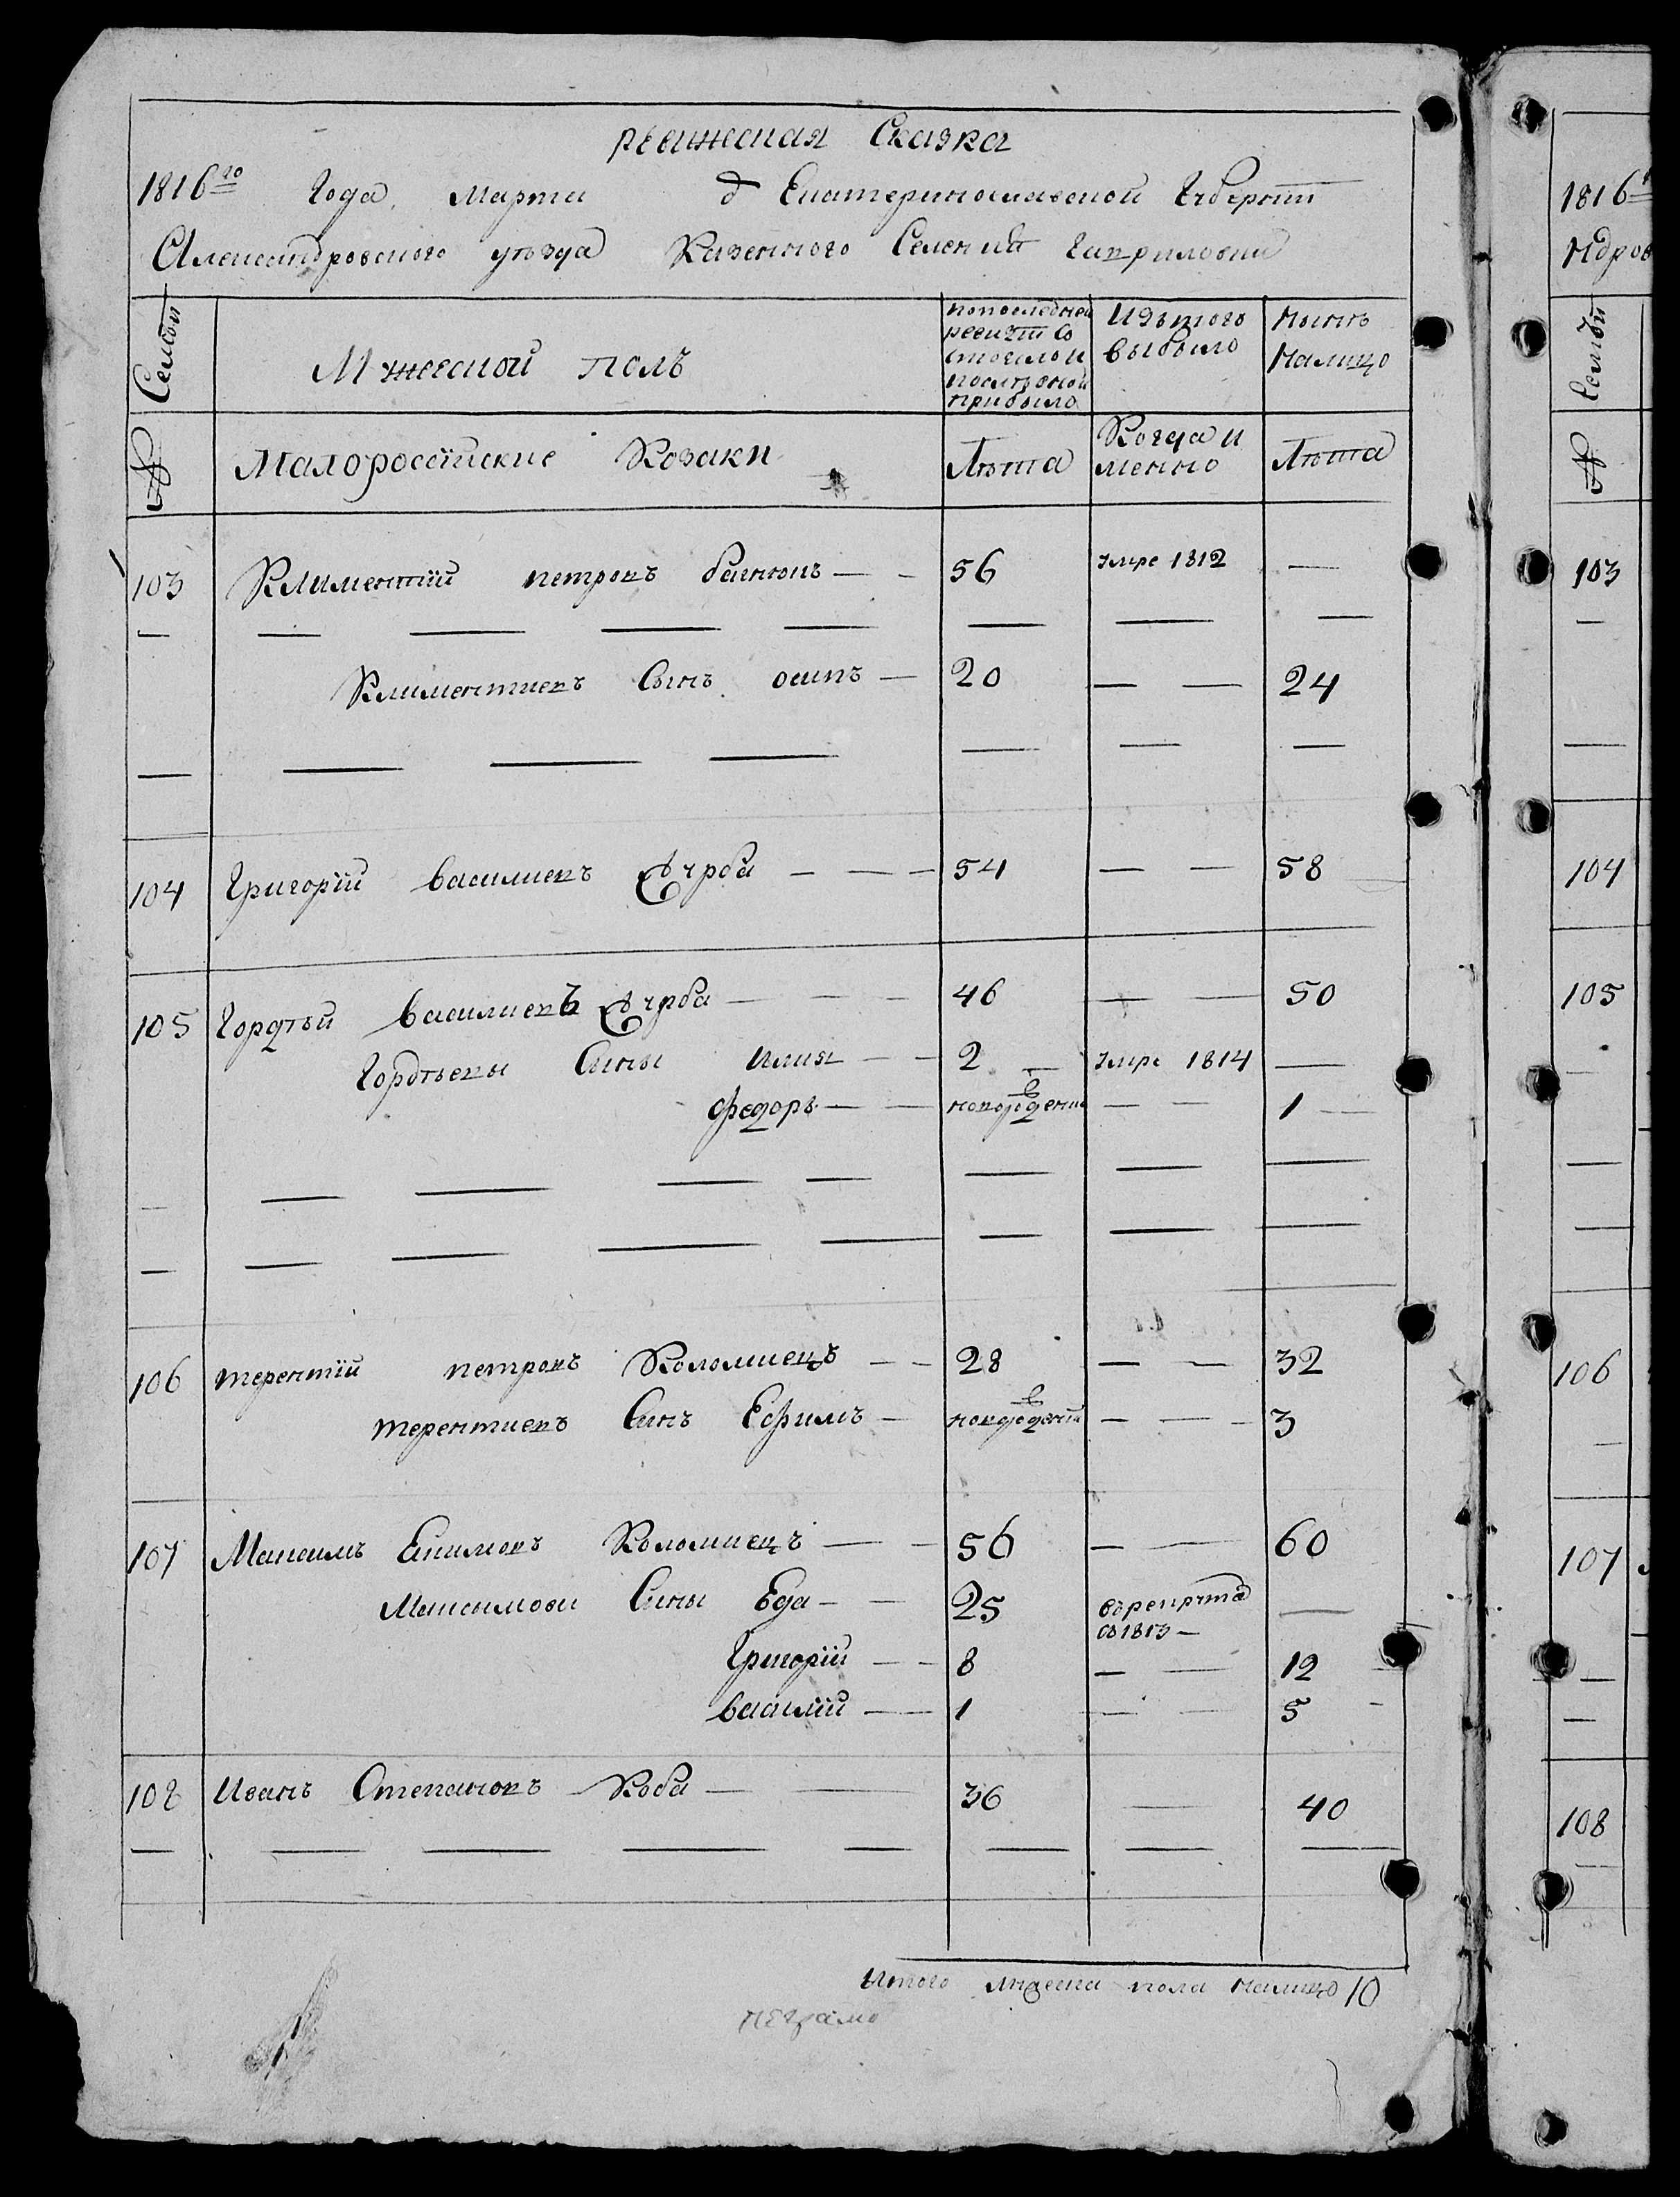 ревижская Сказка
1816го Года, Марта д Екатеринославской Губернии
Александровского уѣзда Казенного Селения Гавриловки
Семьи Мужеской полъ
попоследней ревизіи состояло и послѣ оной прибыло
Изъ того выбыло
Нынѣ Налицо
№ Малороссійские Козаки Лѣта Когда и менно Лѣта
103 Климентій петровъ 56 умре 1812 —
Климентиевъ Сынъ осипъ — 20 — — 24
104 Григорій василиевъ — — — 54 — — 58
105 Гордѣй василиевъ — — — 46 — — 50
Гордѣевы Сины илия — — 2 умре 1814 —
федоръ — — новорожденъ — — 1
106 терентій петровъ Коломиецъ — — 28 — — 32
терентиевъ Синъ Ефимъ — новорожденъ — — 3
107 Максимъ Екимовъ Коломиецъ — — 56 — — 60
Максимови Сины Еда — — 25 врекрута въ 1813 — —
Григорій — — 8 — — 12
василій — — 1 — — 5
108 Иванъ Степановъ Коба — — 36 — 40
Итого мужеска пола налицо 10
неграмо
1816
ндров
Семьи
№
103
104
105
106
107
108